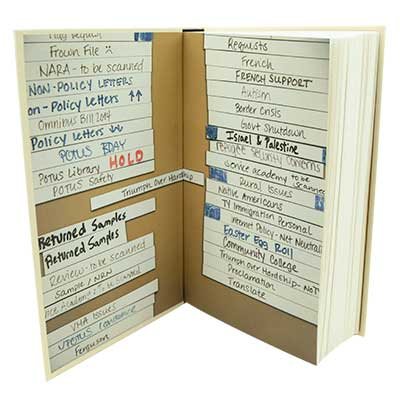 Frown File ☹
NARA - to be scanned
NON-POLICY LETTERS
on-Policy Letters ↑↑
Omnibus Bill 2014
Policy Letters
POTUS BDAY
POTUS Library HOLD
POTUS Safety
Triumph Over Hardship
Returned Samples
Returned Samples
Review - to be scanned
Sample / NRN
To be Scanned
VHA Issues
VPOTUS Condolence
Ferguson
Requests
French
FRENCH SUPPORT
Autism
Border Crisis
Govt Shutdown
Israel & Palestine
Security Concerns
Service academy to be scanned
Rural Issues
Native Americans
TY Immigration Personal
Internet Policy - Net Neutrali
Easter Egg Roll
Community College
Triumph over Hardship - NOT
Proclamation
Translate